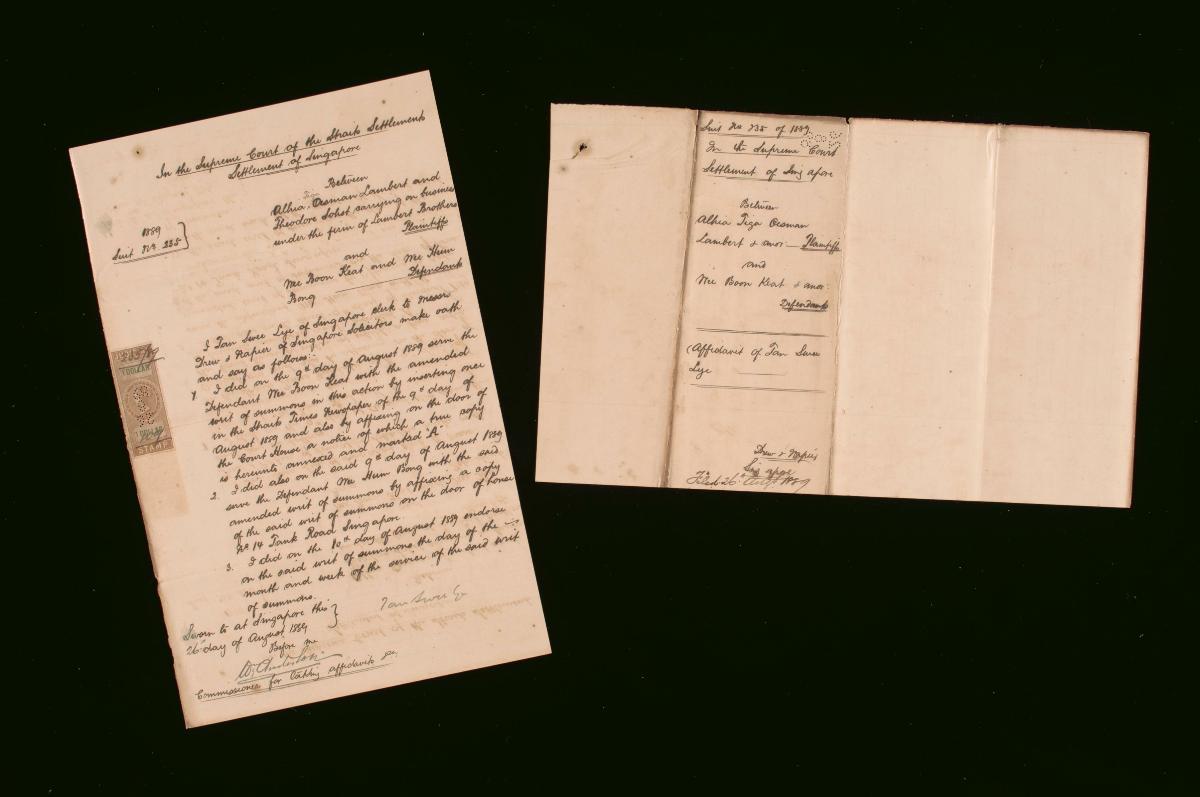 In the Supreme Court of the Straits Settlements
Settlement of Singapore
Between
1889
Suit No. 235
Athia Tiga Oesman Lambert and
Theodore Sohst carrying on business
under the firm of Lambert Brothers
Plaintiffs
and
Wee Boon Keat and Wee Hum
Bong Defendants
I Tan Swee Lye of Singapore clerk to Messrs
Drew & Napier of Singapore Solicitors make oath
and say as follows:-
1. I did on the 9th day of August 1889 serve the
Defendant Wee Boon Keat with the amended
writ of summons in this action by inserting once
in the Straits Times Newspaper of the 9th day of
August 1889 and also by affixing on the door of
the Court House a notice of which a true copy
is hereunto annexed and marked "A"
2. I did also on the said 9th day of August 1889
serve the Defendant Wee Hum Bong with the said
amended writ of summons by affixing a copy
of the said writ of summons on the door of house
No. 14 Tank Road Singapore
3. I did on the 10th day of August 1889 endorse
on the said writ of summons the day of the
month and week of the service of the said writ
of summons.
Sworn to at Singapore this
26th day of August 1889
Tan Swee Lye
Before me
Commissioner for taking affidavits &c.
1 DOLLAR
1 DOLLAR
STAMP
Suit No 235 of 1889
In the Supreme Court
Settlement of Singapore
Between
Athia Tiga Oesman
Lambert & anor Plaintiffs
and
Wee Boon Keat & anor:
Defendants
Affidavit of Tan Swee
Lye
Drew & Napier
Singapore
Filed 26th Augt 1889